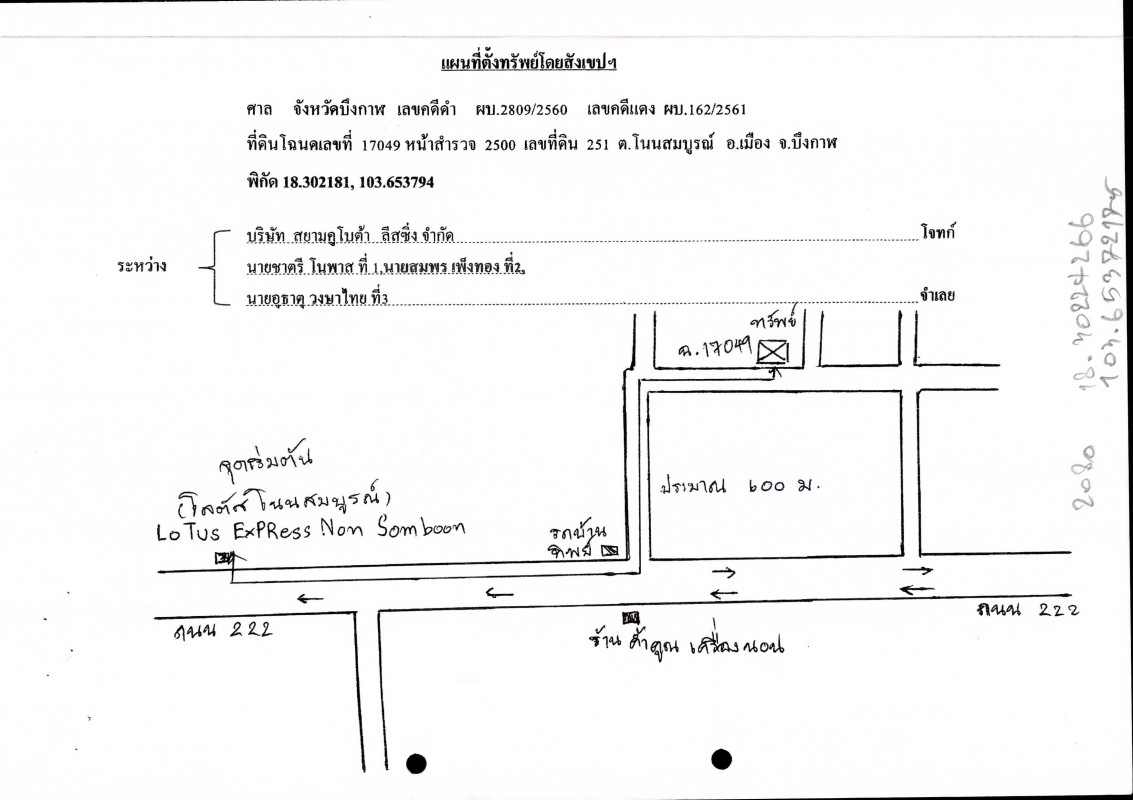 แผนที่ตั้งทรัพย์โดยสังเขปฯ
ศาล จังหวัดบึงกาฬ เลขคดีดำ ผบ.2809/2560 เลขคดีแดง ผบ.162/2561
ที่ดินโฉนดเลขที่ 17049 หน้าสำรวจ 2500 เลขที่ดิน 251 ต.โนนสมบูรณ์ อ.เมือง จ.บึงกาฬ
พิกัด 18.302181, 103.653794
บริษัท สยามคูโบต้า ลีสซิ่ง จำกัด โจทก์
ระหว่าง
นายชาตรี โนพาส ที่ 1,นายสมพร เพ็งทอง ที่2,
นายอุธาตุ วงษาไทย ที่3 จำเลย
ทรัพย์
ฉ.17049
จุดเริ่มต้น
(โลตัสโนนสมบูรณ์)
LoTus ExPRess Non Somboon
ประมาณ ๖00 ม.
รถบ้าน
ทิพย์
ถนน 222
ถนน 222
ร้าน ค้าคูณ เครื่องนอน